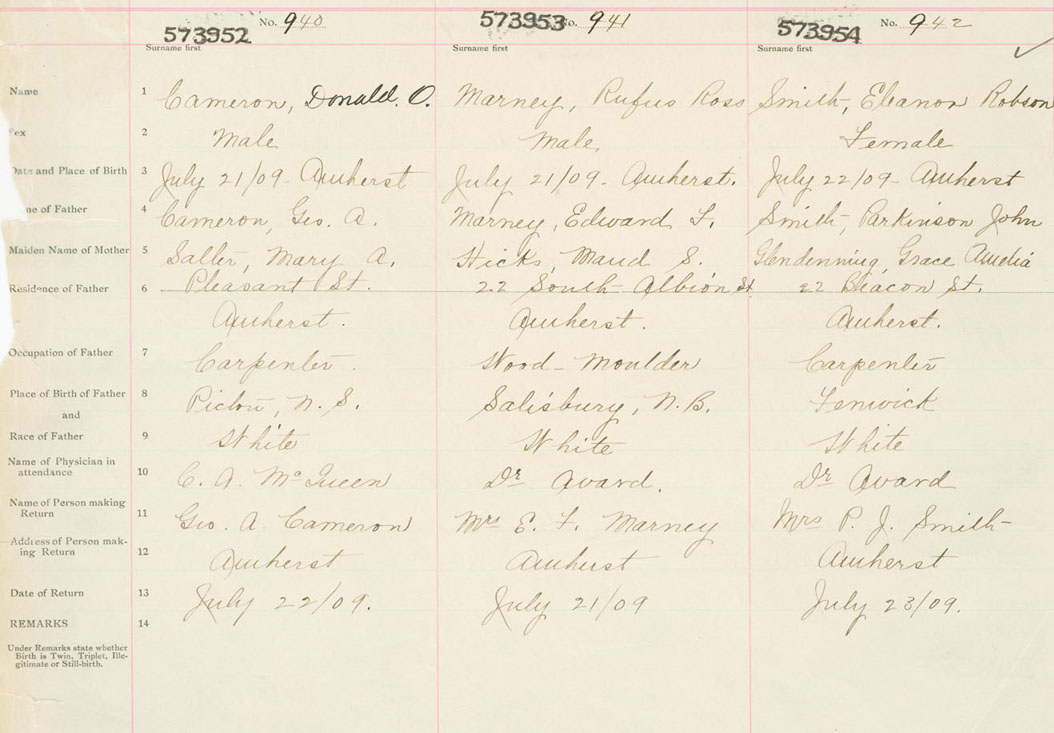 573952 No. 940 573953 No. 941 573954 No. 942
Surname first Surname first Surname first
Name 1 Cameron, Donald. O. Marney, Rufus Ross Smith, Eleanor Robson
Sex 2 Male Male Female
Date and Place of Birth 3 July 21/09 - Amherst July 21/09 - Amherst. July 22/09 - Amherst
me of Father 4 Cameron, Geo. A. Marney, Edward F. Smith, Parkinson John
Maiden Name of Mother 5 Salter, Mary A. Hicks, Maud S. Glendenning, Grace Amelia
Residence of Father 6 Pleasant St. 22 South Albion St 22 Beacon St.
Amherst. Amherst. Amherst.
Occupation of Father 7 Carpenter Wood - Moulder Carpenter
Place of Birth of Father 8 Pictou, N. S. Salisbury, N.B. Fenwick
and
Race of Father 9 White White White
Name of Physician in
attendance 10 C. A. McQueen Dr Avard. Dr Avard
Name of Person making
Return 11 Geo. A. Cameron Mrs E. F. Marney Mrs P. J. Smith
Address of Person mak-
ing Return 12 Amherst Amherst Amherst
Date of Return 13 July 22/09. July 21/09 July 23/09.
REMARKS 14
Under Remarks state whether
Birth is Twin, Triplet, Ille-
gitimate or Still-birth.